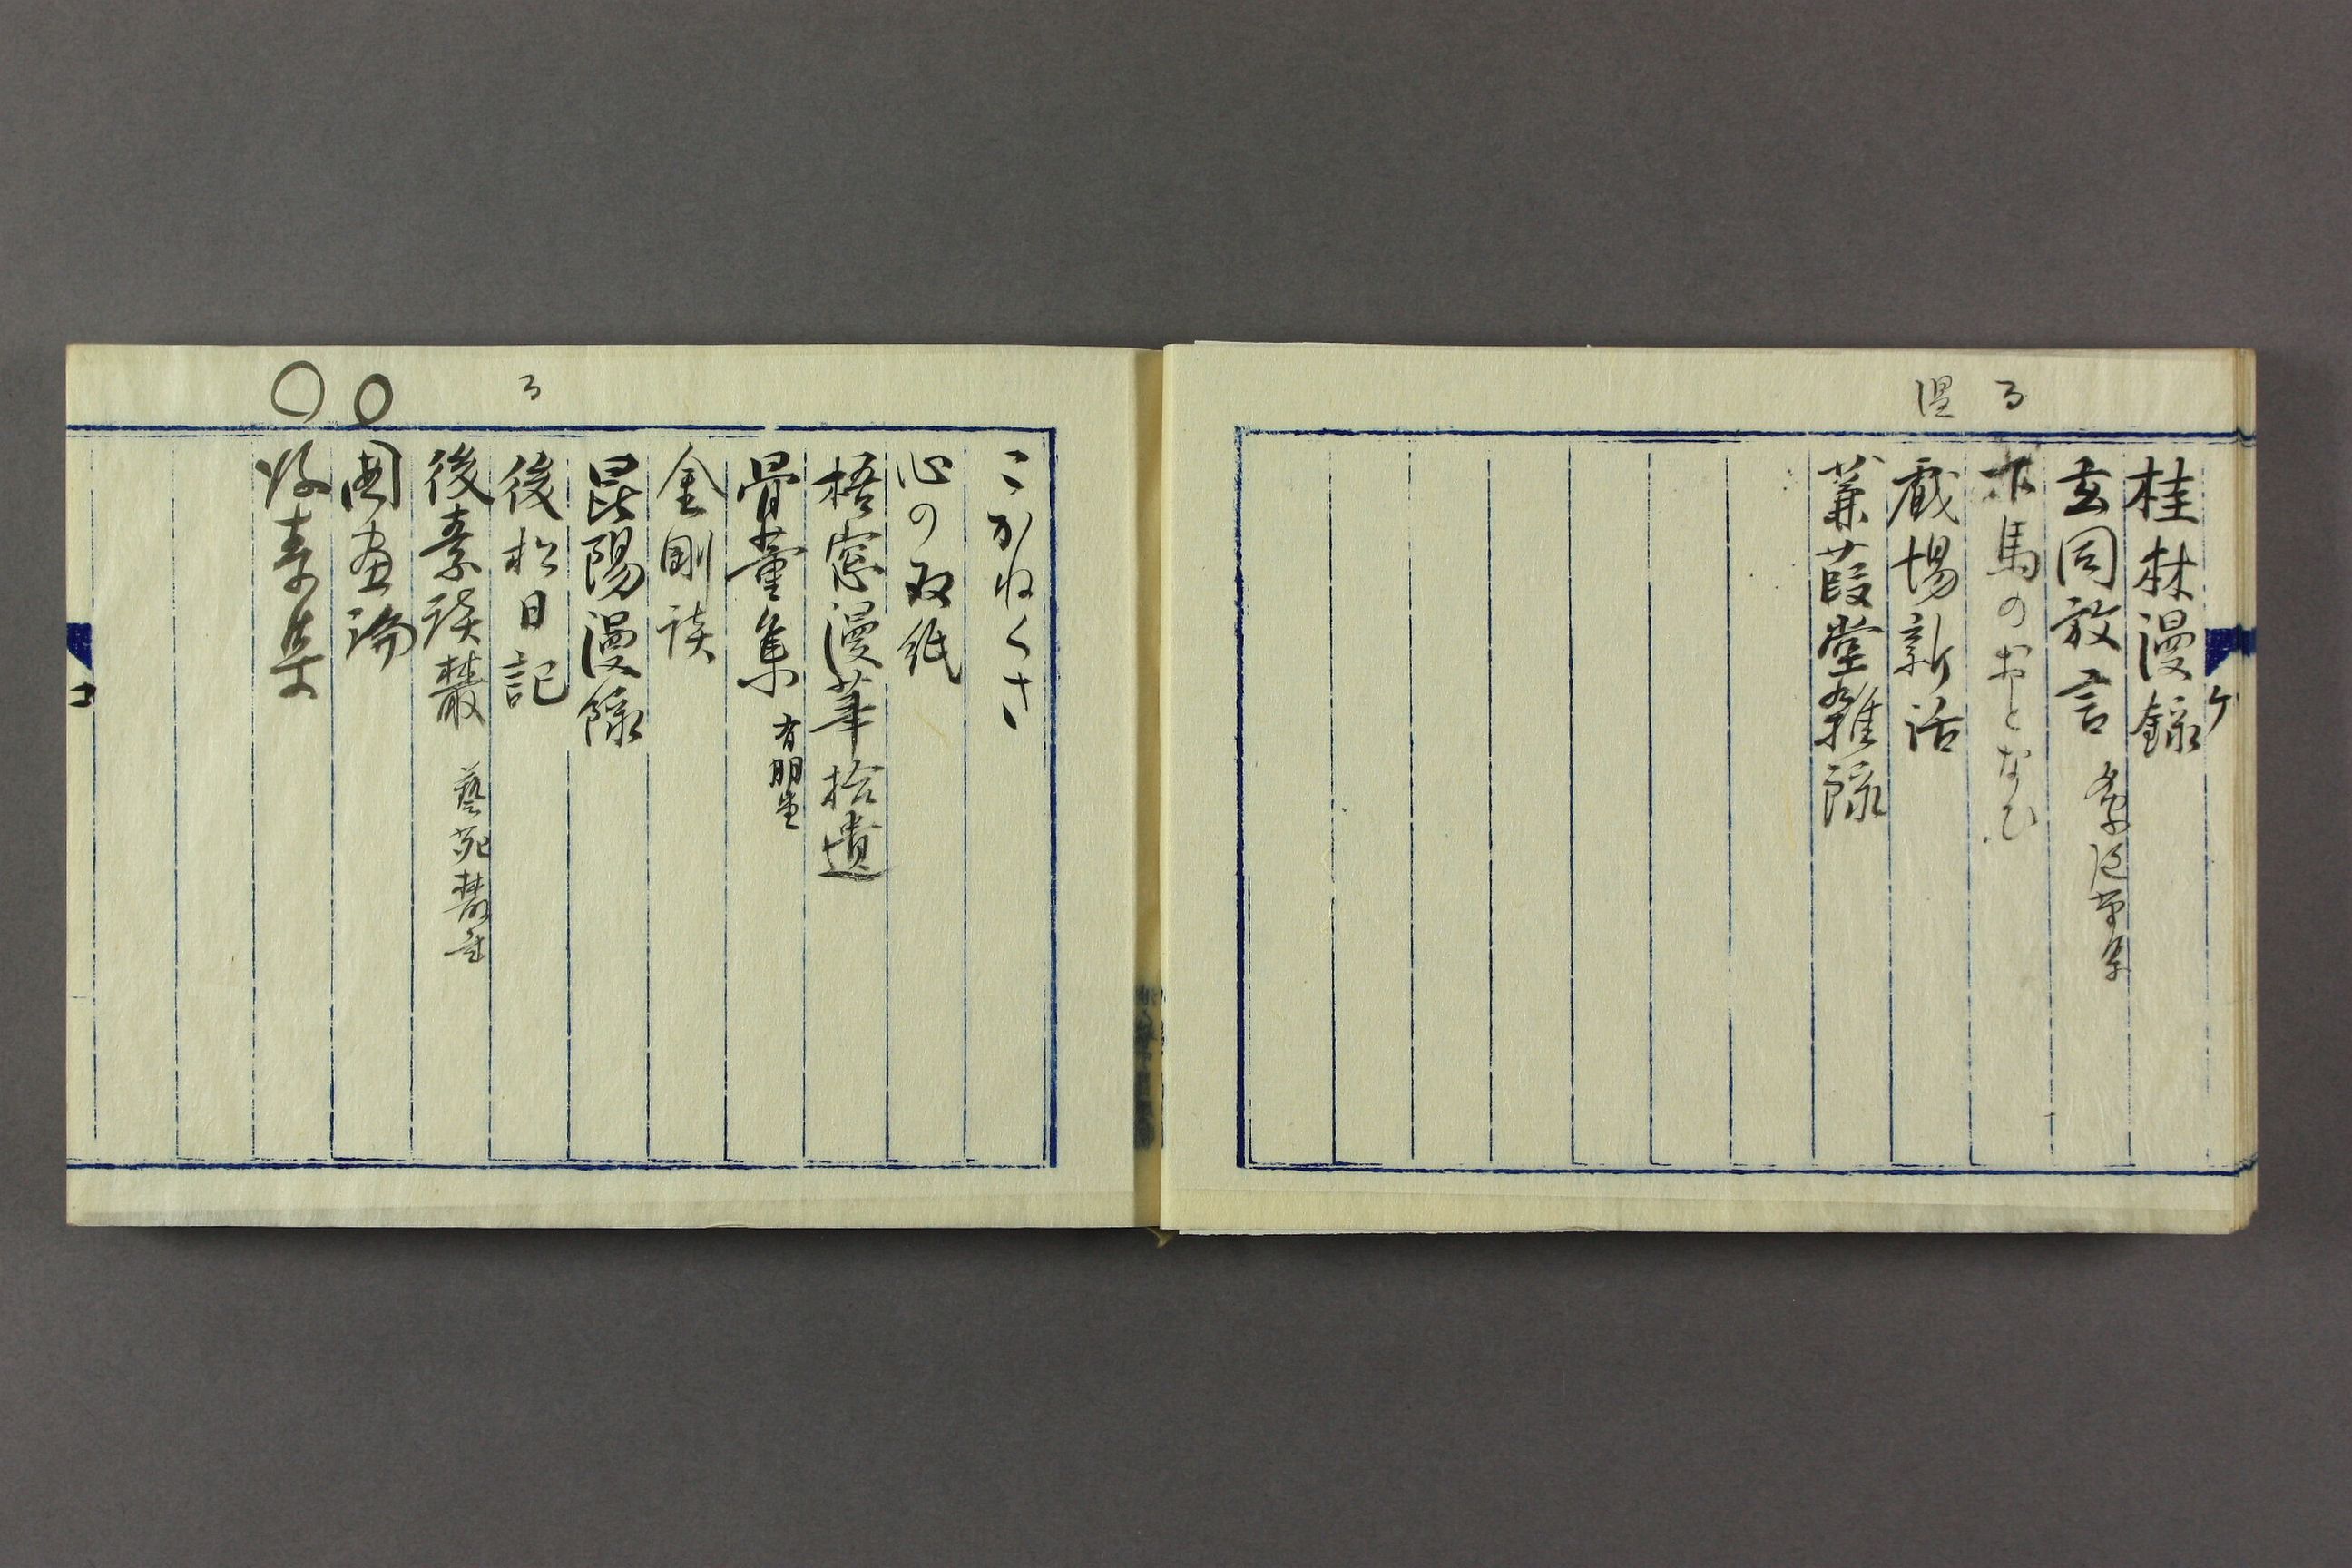 ケ
桂林漫録
玄同放言
木馬のおとなひ
戯場新話
蒹葭堂雑録
こがねくさ
心の双紙
梧窓漫筆拾遺
骨董集 有朋堂
金剛談
昆陽漫録
後松日記
後素談叢 藝苑叢書
国画論
好古
コ